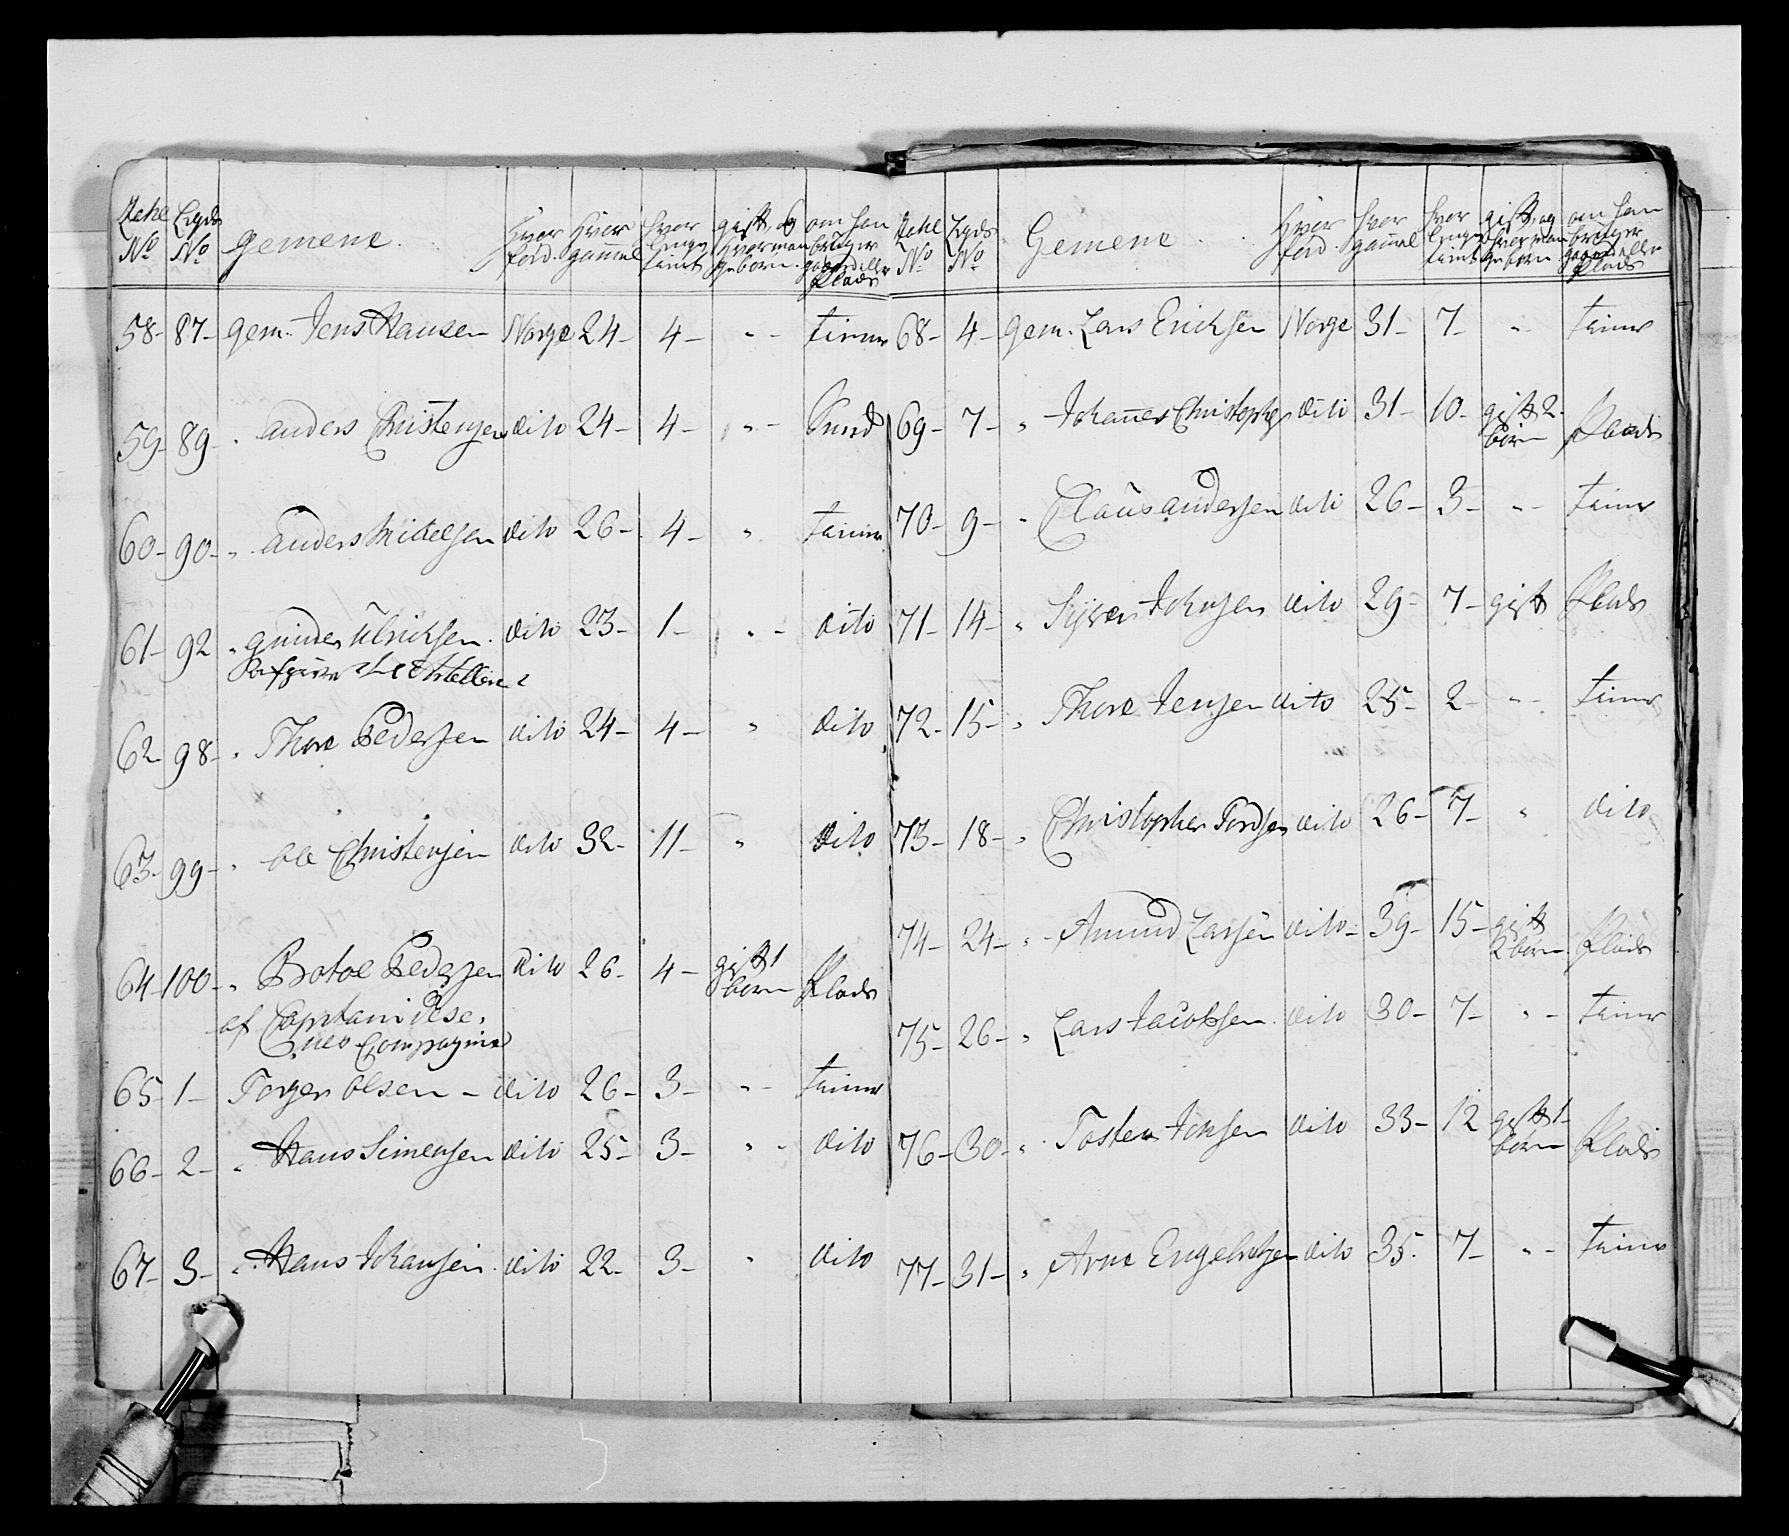 Zehl No Lgds No Gemene. Hvor fød. Hvor gammel hvor lenge tient gift, og hvor mange børn. om han bruger gaard eller Plads
58- 87- gem. Jens Hansen Norge 24- 4- " - tiener
59- 89- " anders Christensen dito 24- 4- " -
60- 90- " anders Mickelsen dito 26- 4- " tiener
61- 92 " gunder Ulricksen. dito 23- 1- " - dito
62- 98- " Thore Pedersen dito 24- 4- " dito
63- 99- " ole Christensen dito 32- 11- " dito
64- 100- " Botol Pedersen dito 26- 4- gift 1 børn Plads
af Capitain
Compagnie
65- 1- Torger olsen - dito 26- 3- " - tiener
66- 2- " Hans Simensen dito 25- 3- " - dito
67- 3- " Hans Johansen dito 22- 3- " dito
Zehl No Lgds No Gemene. Hvor fød hvor gammel hvor lenge tient gift, og hvor mange børn om han bruger gaard eller Plads
68- 4- gem. Lars Ericksen Norge 31- 7- " tiener
69- 7- " Johannes Christophers dito 31- 10- gift 2- børn Plads
70- 9- " Claus andersen dito 26- 3- " - tiener
71- 14- " Syver Johnsen dito 29- 7- gift Plads
72- 15- " Thore Jensen dito 25- 2- " - tiener
73- 18- " Christopher Tordsen dito 26- 7- " dito
74- 24- " Amund Larsen dito- 39- 15- gift 2 børn Plads
75- 26- " Lars Jacobsen dito 30- 7- " - tiener
76- 30- " Tosten Johsen dito 33- 12 gift 1- børn Plads
77- 31- " Arne Engebretsen dito 35. 7- " - tiener